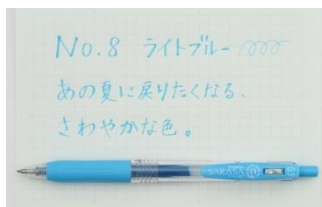 No.8 ライトブルー
あの夏に戻りたくなる、
さわやかな色。
SARASA